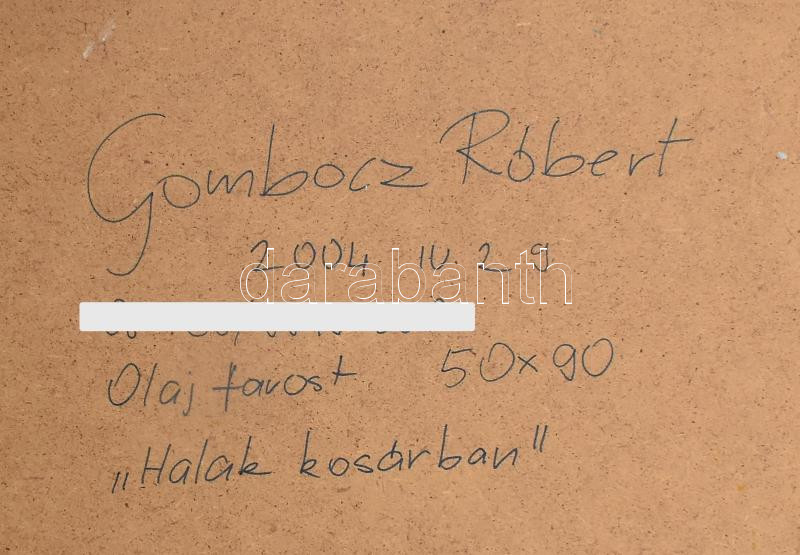 Gombocz Róbert
2004 IV. 29
darabanth
Olaj farost 50x90
„Halak kosárban"